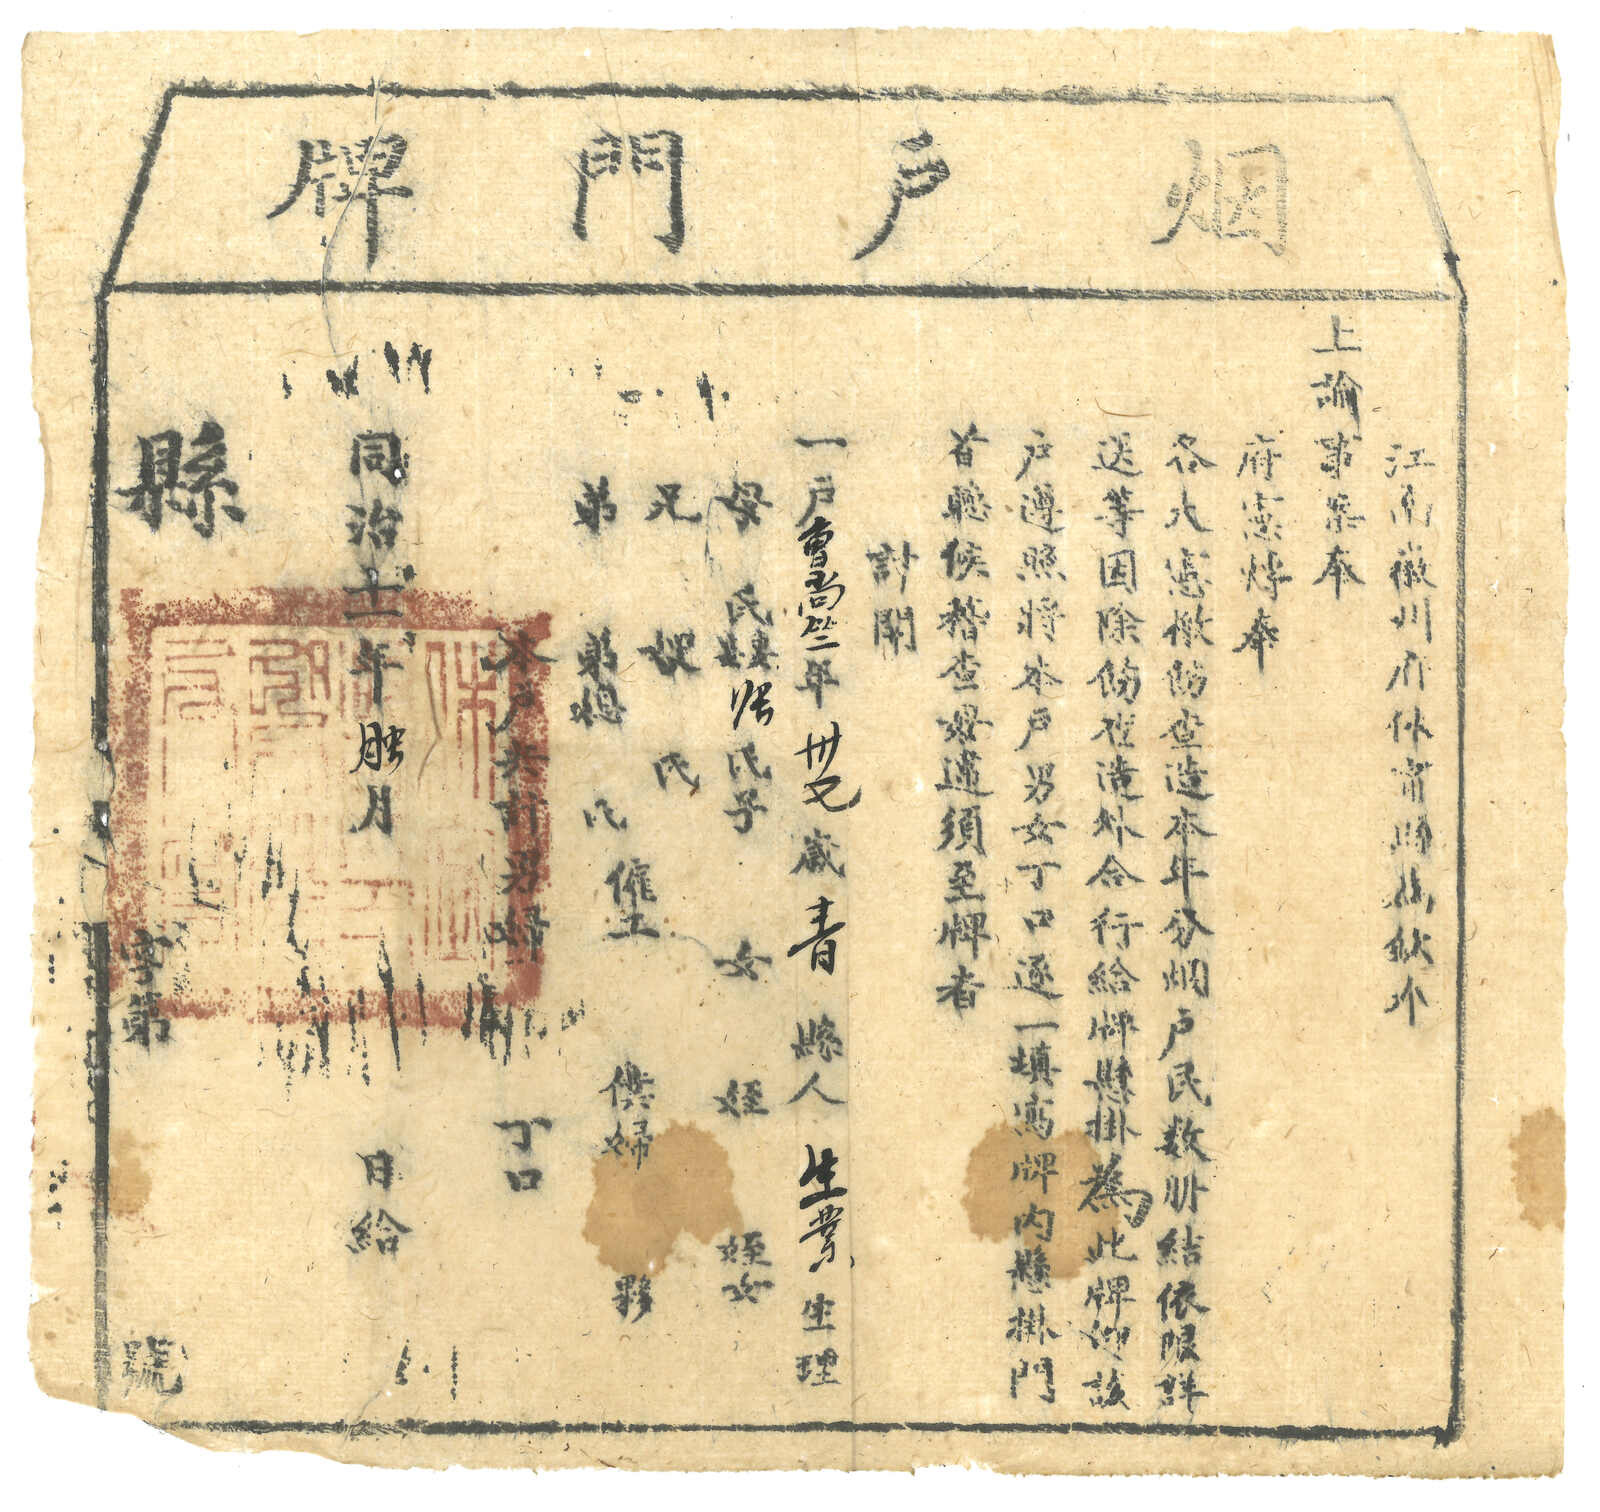 烟户門牌
江南徽州府休甯縣為欽奉
上諭事案奉
府憲牌奉
各大憲檄飭查造本年分烟户民数册結依限詳
送等因除飭查造外合行給牌懸掛為此牌仰該
户遵照將本户男女丁口逐一填寫牌内懸掛門
首聽候稽查毋違須至牌者
計開
一户曹尚 年卅又歲 青 縣人 生業 生理
母 氏 妻張氏 子 女 姪 姪女
兄 嫂 氏
弟 弟媳 氏 僱工 僕婦 夥
本户共計男婦 丁口
同治十二年 月 日給
縣
字第 號